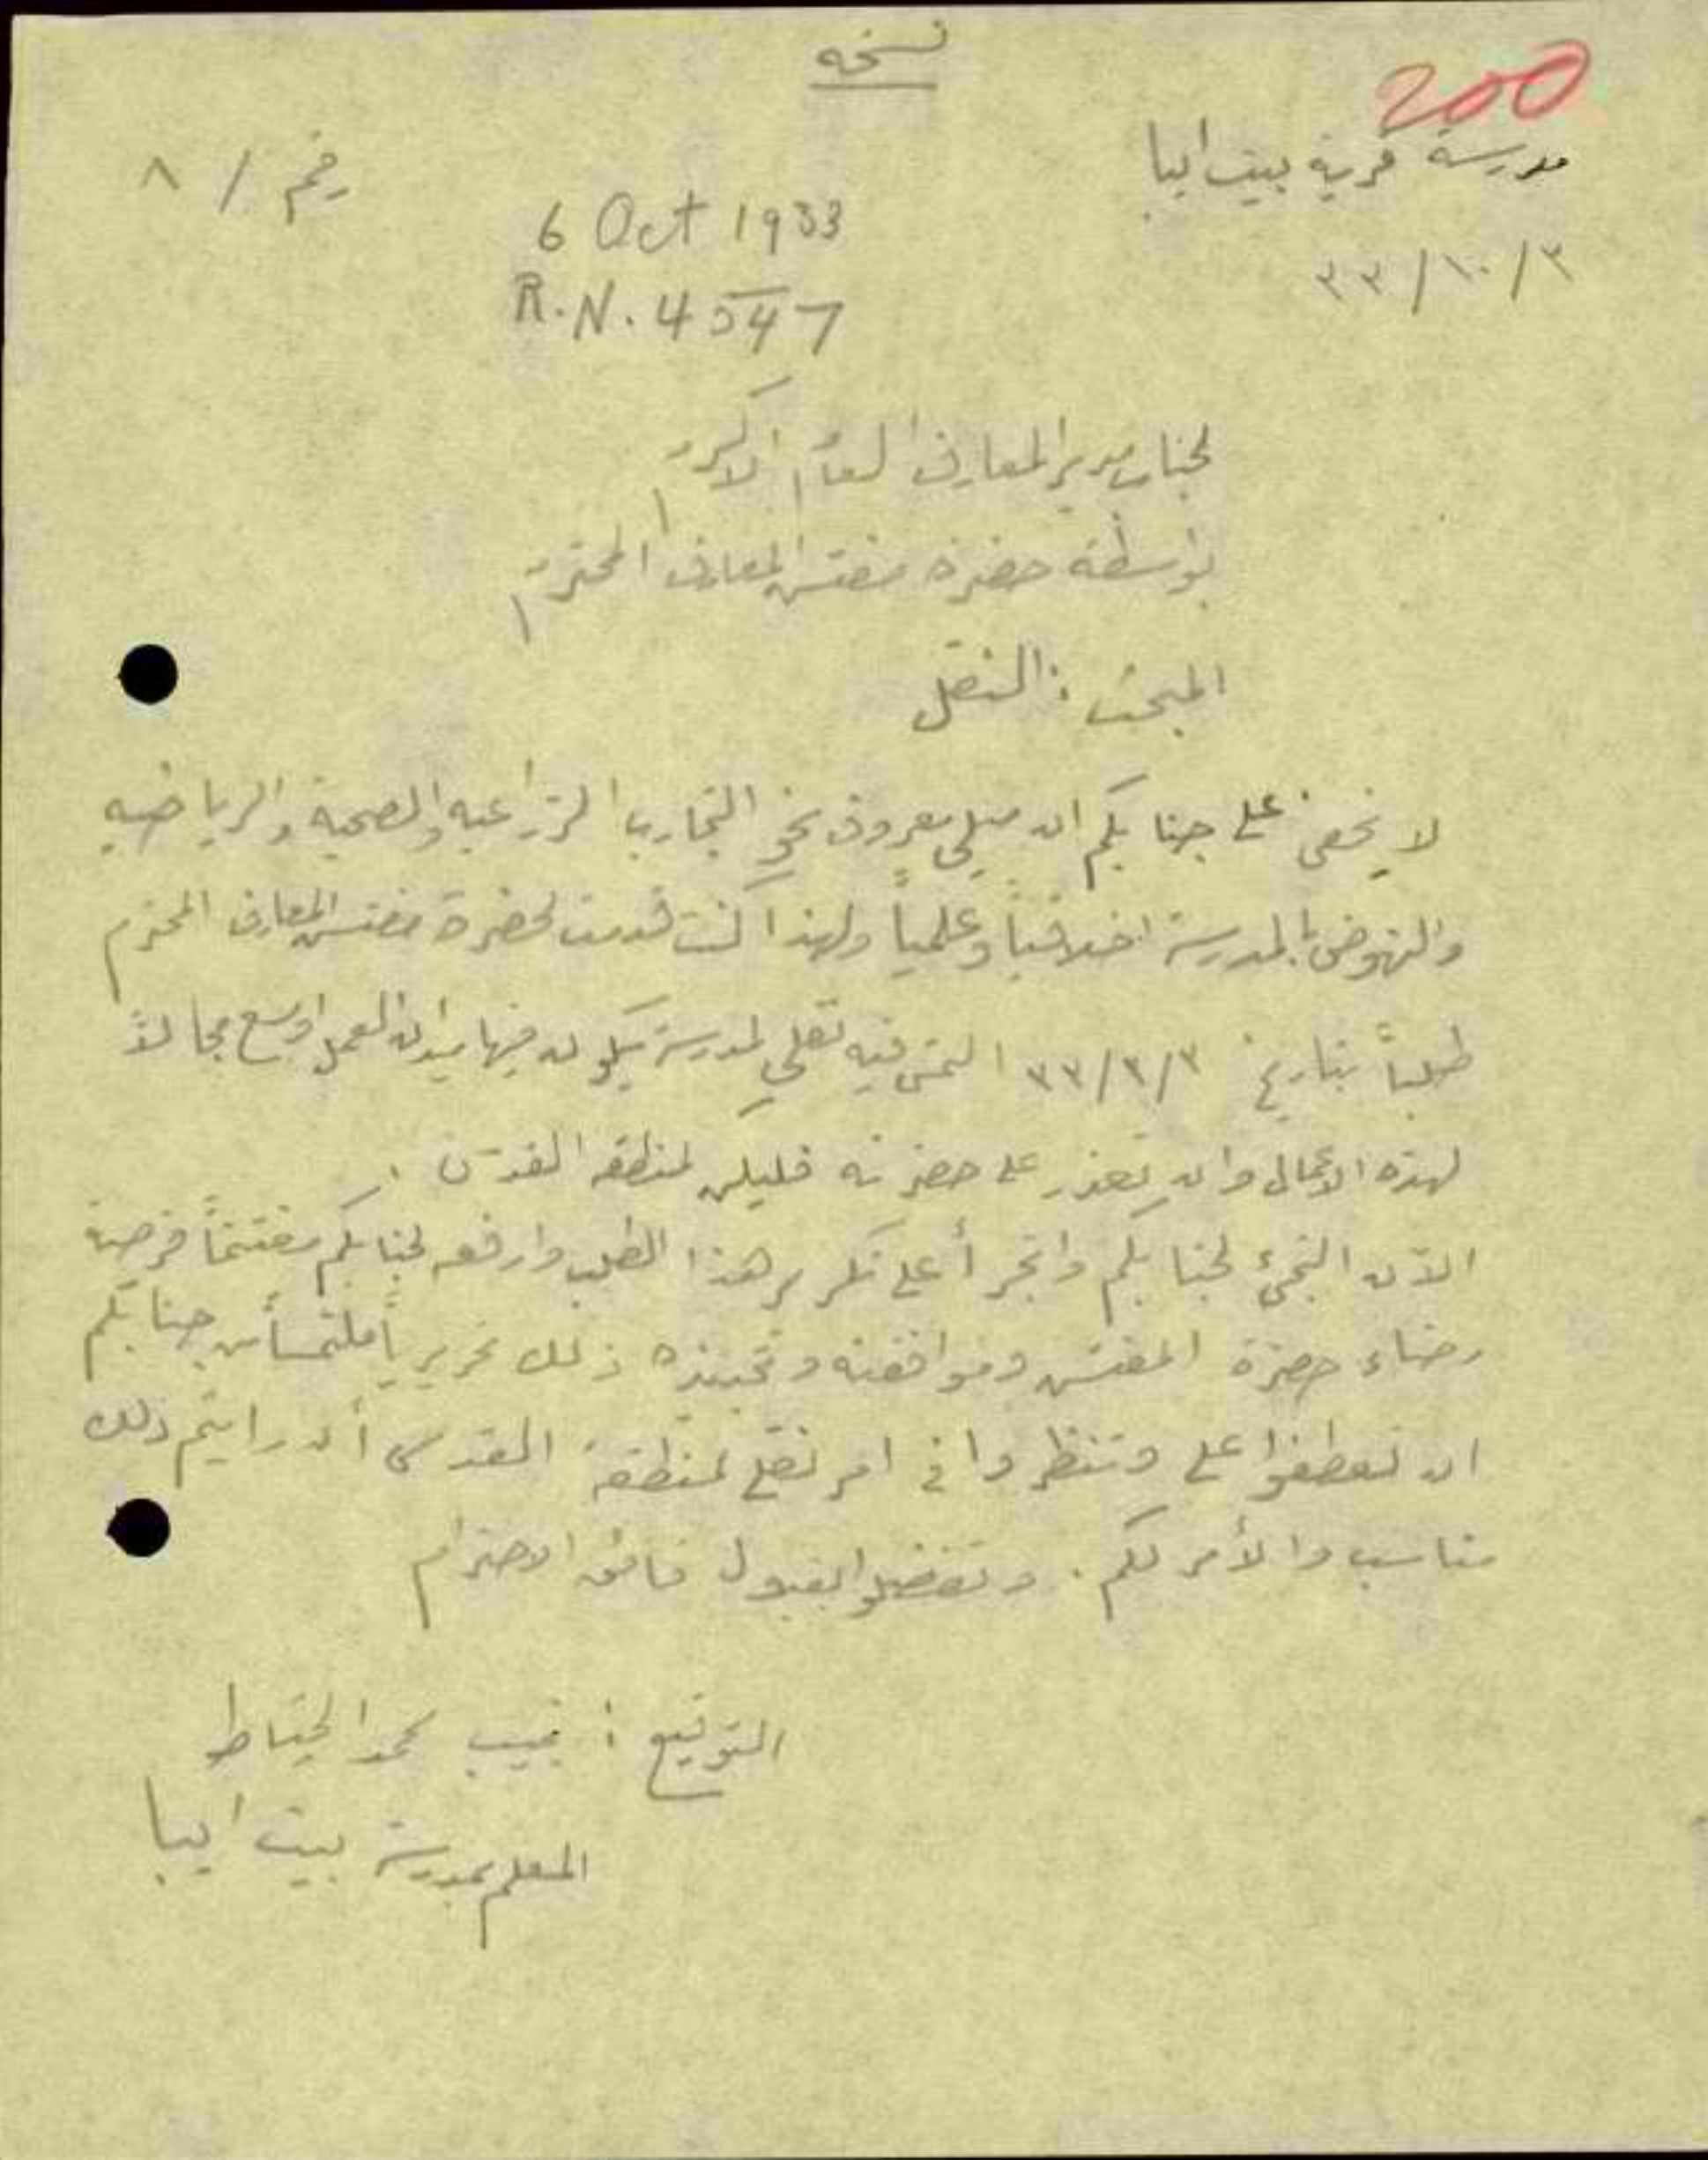 نسخه
200
مدرسة قرية بيت ايبا
رقم / ٨
6 Oct 1933
٣/١٠/٣٣
R.N. 4547
لجناب مدير المعارف العام الاكرم
بواسطة حضرة مفتش المعارف المحترم
المبحث : النقل
لا يخفى على جنابكم ان ميلي معروف نحو التجارب الزراعيه والصحية والرياضيه
والنهوض بالمدرسة اخلاقياً وعلمياً ولهذا كنت قدمت لحضرة مفتش المعارف المحترم
طلباً بتاريخ ٣/٣/٣٣ التمس فيه نقلي لمدرسة يكون فيها ميدان العمل اوسع مجالاً
لهذه الاعمال وان تعذر على حضرته فليكن لمنطقة القدس .
الآن التجئ لجنابكم واتجرأ على تكرير هذا الطلب وارفعه لجنابكم مغتنماً فرصة
رضاء حضرة المفتش وموافقته وتحبيذه ذلك تحريرياً ملتمساً من جنابكم
ان تعطفوا علي وتنظروا في امر نقلي لمنطقة القدس أن رايتم ذلك
مناسب والأمر لكم . وتفضلوا بقبول فائق الاحترام
التوقيع : نجيب محمد الخياط
المعلم بمدرسة بيت ايبا